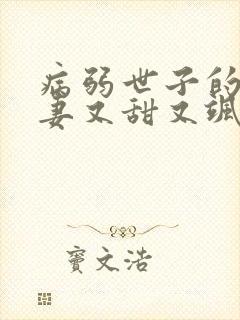 病弱世子的
妻又甜又飒
窦文浩